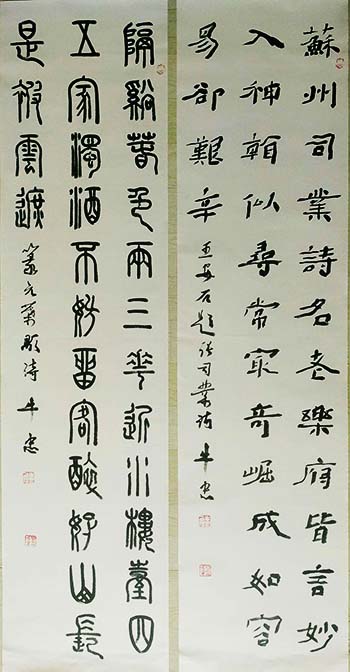 蘇州司業詩名老樂府皆言妙
入神看似尋常最奇崛成如容
易卻艱辛
王安石題張司業詩 牛忠
隔谿春色兩三花近水樓臺四
五家濁酒不妨留客醉好山長
是被雲遮
篆元葉顒詩 牛忠